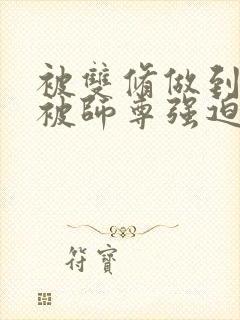 被雙脩做到
被師尊强迫
符寶